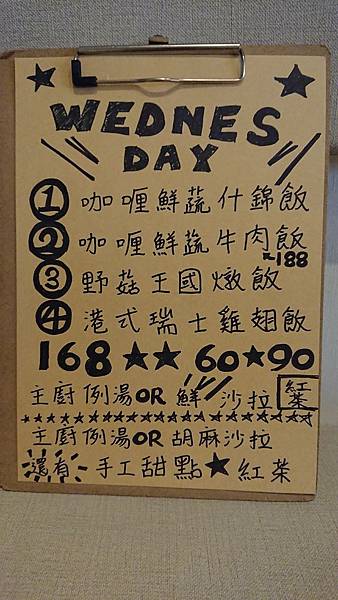 WEDNES
DAY
① 咖哩鮮蔬什錦飯
② 咖喱鮮蔬牛肉飯
188
③ 野菇王國燉飯
④ 港式瑞士雞翅飯
168★★60★90
主廚例湯OR鮮沙拉 紅茶
主廚例湯OR胡麻沙拉
還有 手工甜點★紅茶